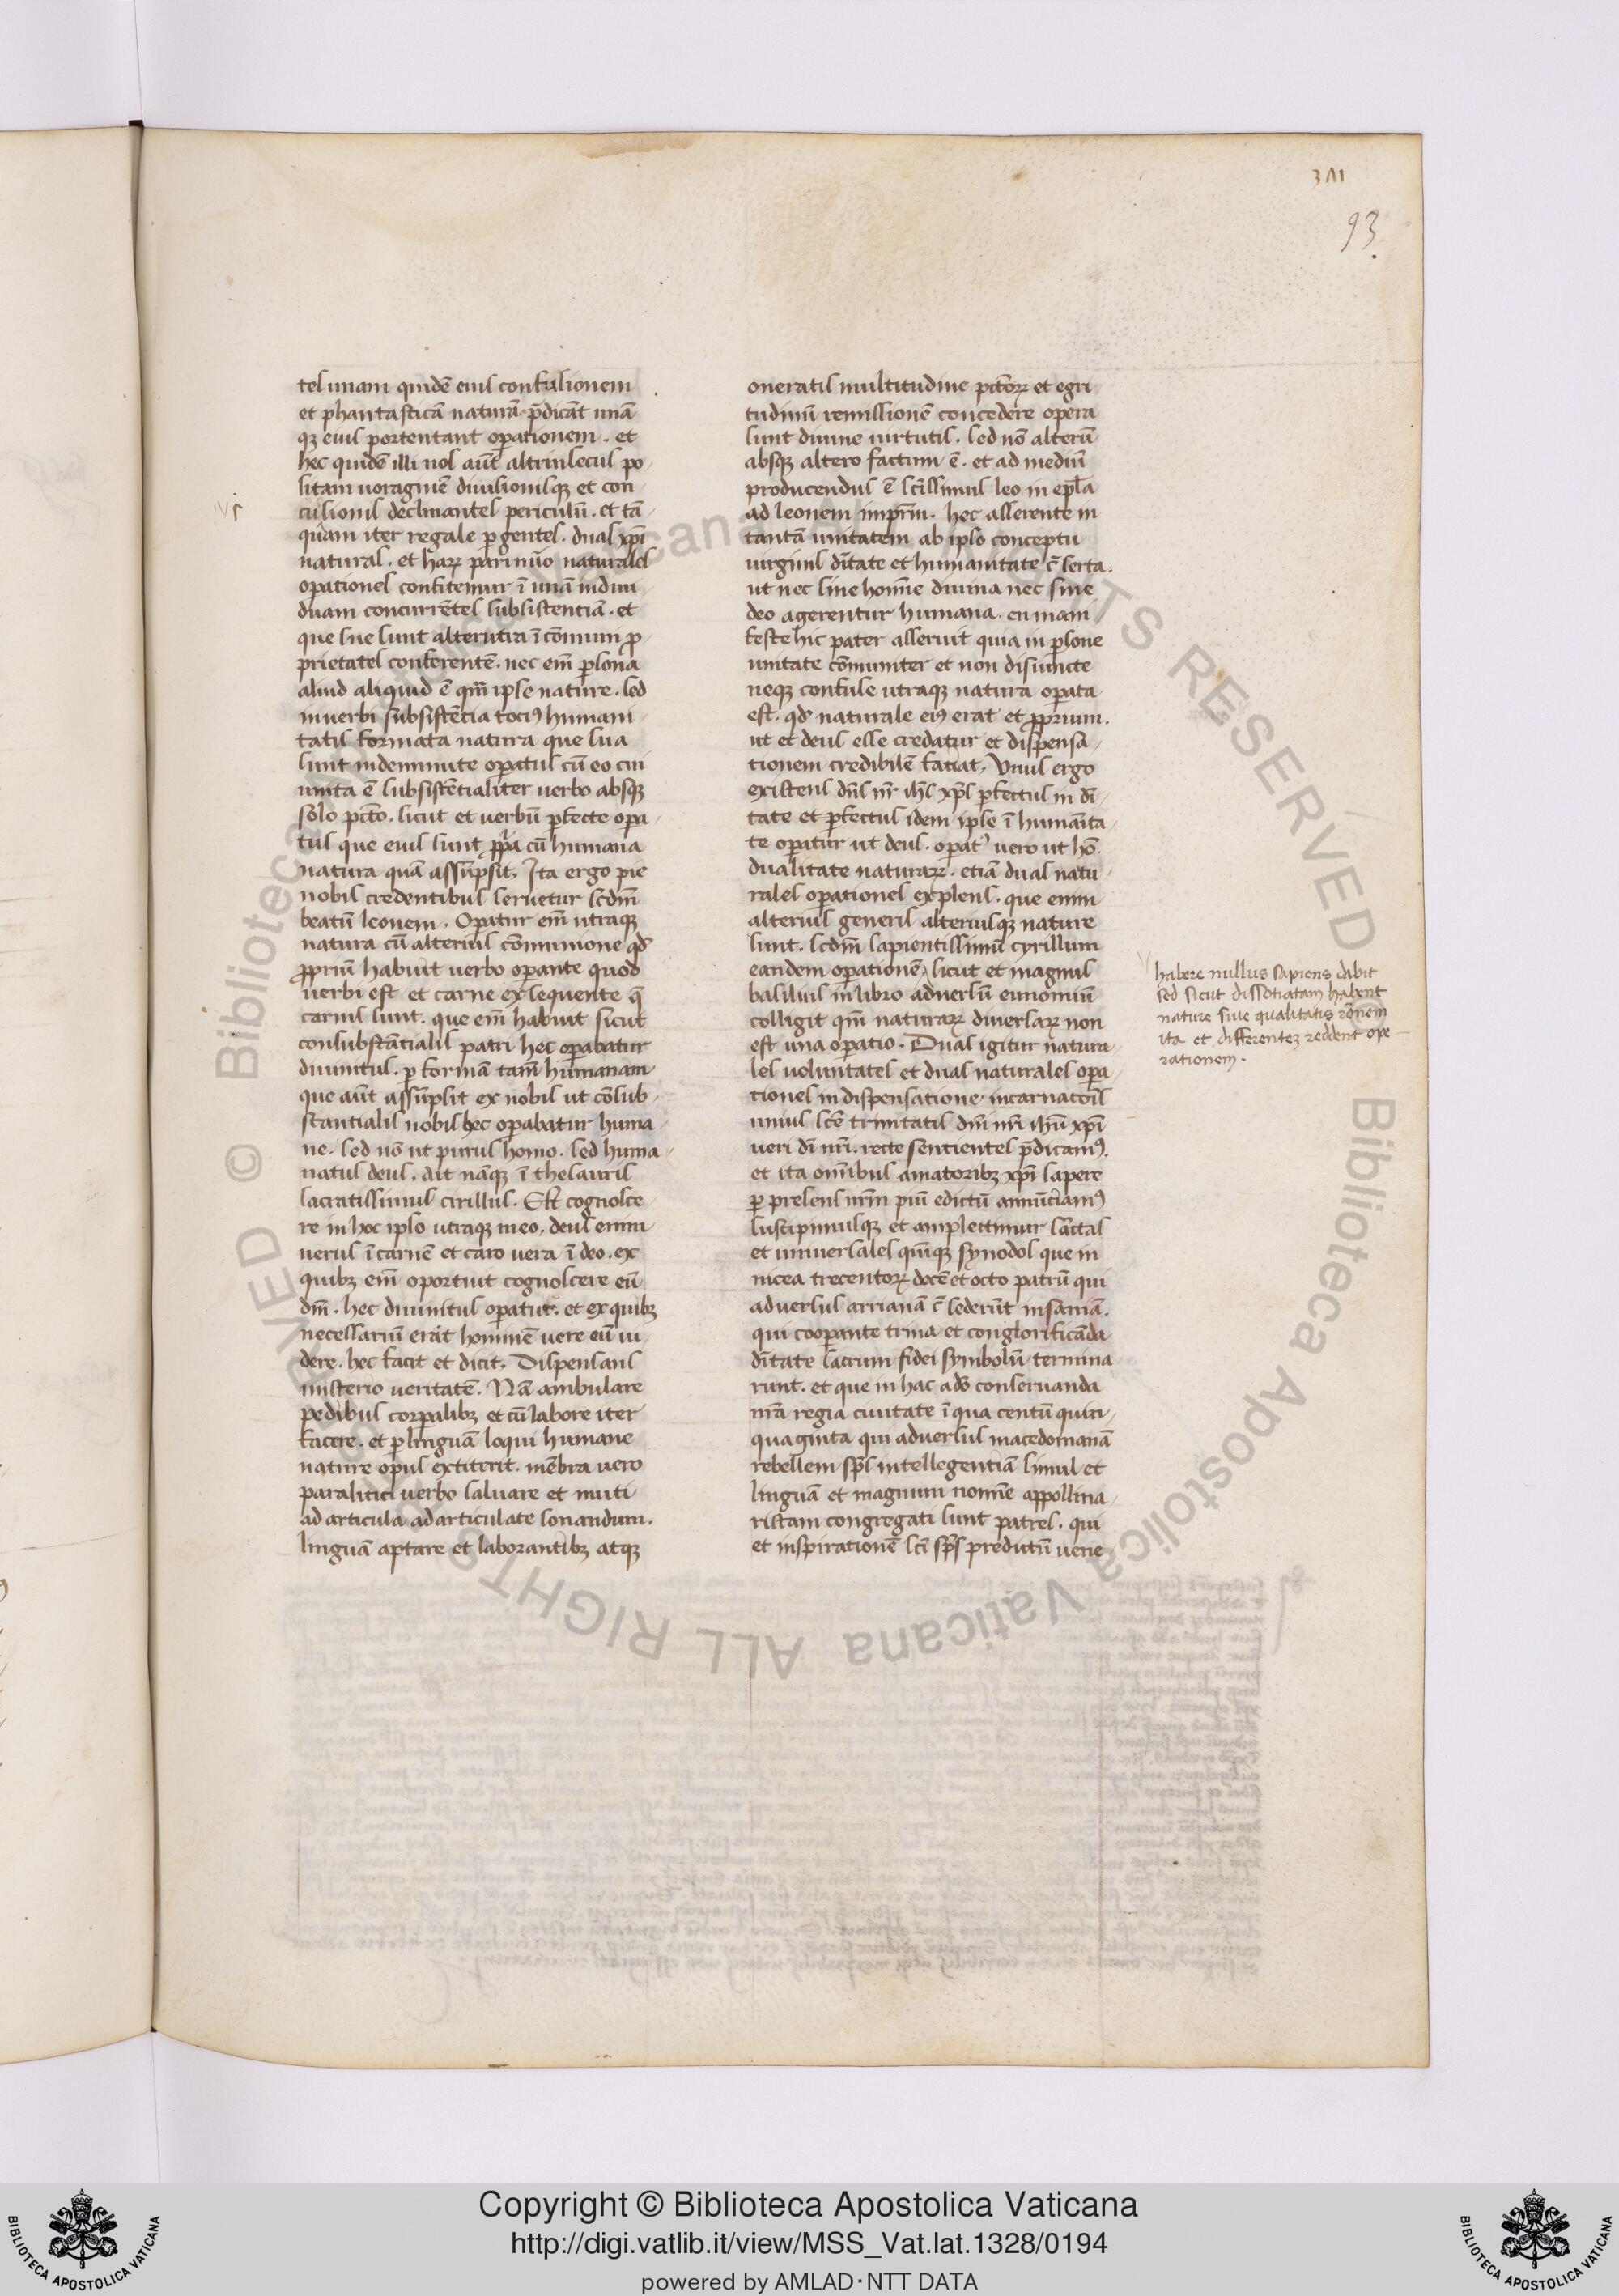 3Λ1
93.
tes unam quidē eius confusionem
et phantasticā naturā p̄dicāt unā
qꝫ eius portentant oꝑationem. et
hec quidē illi nos aūt altrinsecus po
sitam uoraginē diuisionisqꝫ et con
cusionis declinantes periculū. et tā
quam iter regale ꝑgentes. duas xp̄i
naturas. et haꝝ pari mō naturales
oꝑationes confitemur ī unā indiui
duam concurrētes subsistentiā. et
que sue sunt alterutra ī cōmuni ꝓ
prietates conferentē. nec em̄ ꝑsona
aliud aliquid ē qm̄ ipse nature. sed
in uerbi subsistētia tociꝰ humani
tatis formata natura que sua
sunt indeminute oꝑatus cū eo cui
unita ē subsistētialiter uerbo absqꝫ
solo pctō. sicut et uerbū ꝑfecte oꝑa
tus que eius sunt ꝓp̄a cū humana
natura quā assūpsit. Ita ergo pie
nobis credentibus seruetur scdm̄
beatū leonem. Oꝑatur em̄ utraqꝫ
natura cū alterius cōmunione qd̄
ꝓpriū habuit uerbo oꝑante quod
uerbi est et carne exsequente q̄
carnis sunt. que em̄ habuit sicut
consubstātialis patri hec oꝑabatur
diuinitus. ꝑ formā tam̄ humanam
que aūt assūpsit ex nobis ut cōsub
stantialis nobis hec oꝑabatur huma
ne. sed nō ut purus homo. sed huma
natus deus. Ait nāqꝫ ī thesauris
sacratissimus cirillus. Est cognosce
re in hoc ipso utraqꝫ in eo. deus enim
uerus ī carnē et caro uera ī deo. ex
quibꝫ em̄ oportuit cognoscere eū
dm̄. hec diuinitus oꝑatur. et ex quibꝫ
necessariū erat hominē uere eū ui
dere. hec facit et dicit. Dispensans
misterio ueritatē. Nā ambulare
pedibus corꝑalibꝫ et cū labore iter
facere. et ꝑ linguā loqui humane
nature opus extiterit. mēbra uero
paralitici uerbo saluare et muti
ad articula ad articulate sonandum.
linguā aptare et laborantibꝫ atqꝫ
oneratis multitudine pctōꝝ et egri
tudinū remissionē concedere opera
sunt diuine uirtutis. sed nō alterū
absqꝫ altero factum ē. et ad mediū
producendus ē sctīssimus leo in epl̄a
ad leonem imp̄rm̄. hec asserente in
tantā unitatem ab ipso conceptu
uirginis dītate et humanitate c̄serta.
ut nec sine homīe diuina nec sine
deo agerentur humana. en mani
feste hic pater asseruit quia in ꝑsone
unitate cōmuniter et non disiuncte
neqꝫ confuse utraqꝫ natura oꝑata
est. qd̄ naturale eiꝰ erat et ꝓprium.
ut et deus esse credatur et dispensa
tionem credibilē faciat. Unus ergo
existens dn̄s nr̄ ih̄s xp̄s ꝑfectus in dī
tate et ꝑfectus idem ipse ī humaīta
te oꝑatur ut deus. oꝑatᷣ uero ut hō.
dualitate naturaꝝ. etiā duas natu
rales oꝑationes explens. que enim
alterius generis alteriusqꝫ nature
sunt. scdm̄ sapientissimū cyrillum
eandem oꝑationē, sicut et magnus
basilius in libro aduersū eunomiū
colligit qm̄ naturaꝝ diuersaꝝ non
est una oꝑatio. Duas igitur natura
les uoluntates et duas naturales oꝑa
tiones in dispensatione incarnatōis
unius scē trinitatis dn̄i nr̄i ih̄u xp̄i
ueri dī nr̄i. recte sentientes p̄dicamꝰ.
et ita omībus amatoribꝫ xp̄i sapere
ꝑ presens nr̄m piū edictū annūciamꝰ
suscipimusqꝫ et amplectimur sāctas
et uniuersales quīqꝫ synodos que in
nicea trecentoꝝ decē et octo patrū qui
aduersus arrianā c̄sederūt insaniā.
qui cooꝑante trina et conglorificāda
dītate sacrum fidei symbolū termina
runt. et que in hac adō conseruanda
nr̄a regia ciuitate ī qua centū quin
quaginta qui aduersus macedonianā
rebellem sp̄s intellegentiā simul et
linguā et magnum nomīe appollina
ristam congregati sunt patres. qui
et inspirationē scī sp̄s predictū uene
habere nullus sapiens dabit
sed sicut dissotiatam habent
nature siue qualitatis rōnem
ita et differentez reddent ope
rationem.
Copyright © Biblioteca Apostolica Vaticana
http://digi.vatlib.it/view/MSS_Vat.lat.1328/0194
powered by AMLAD·NTT DATA
BIBLIOTECA APOSTOLICA VATICANA
BIBLIOTECA APOSTOLICA VATICANA
© Biblioteca Apostolica Vaticana ALL RIGHTS RESERVED
© Biblioteca Apostolica Vaticana ALL RIGHTS RESERVED